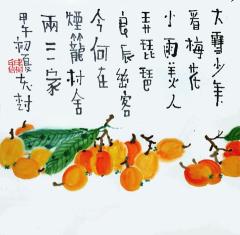 大雪少年
看梅花
小雨美人
弄琵琶
良辰幽客
今何在
煙籠村舍
兩三家
甲午初夏